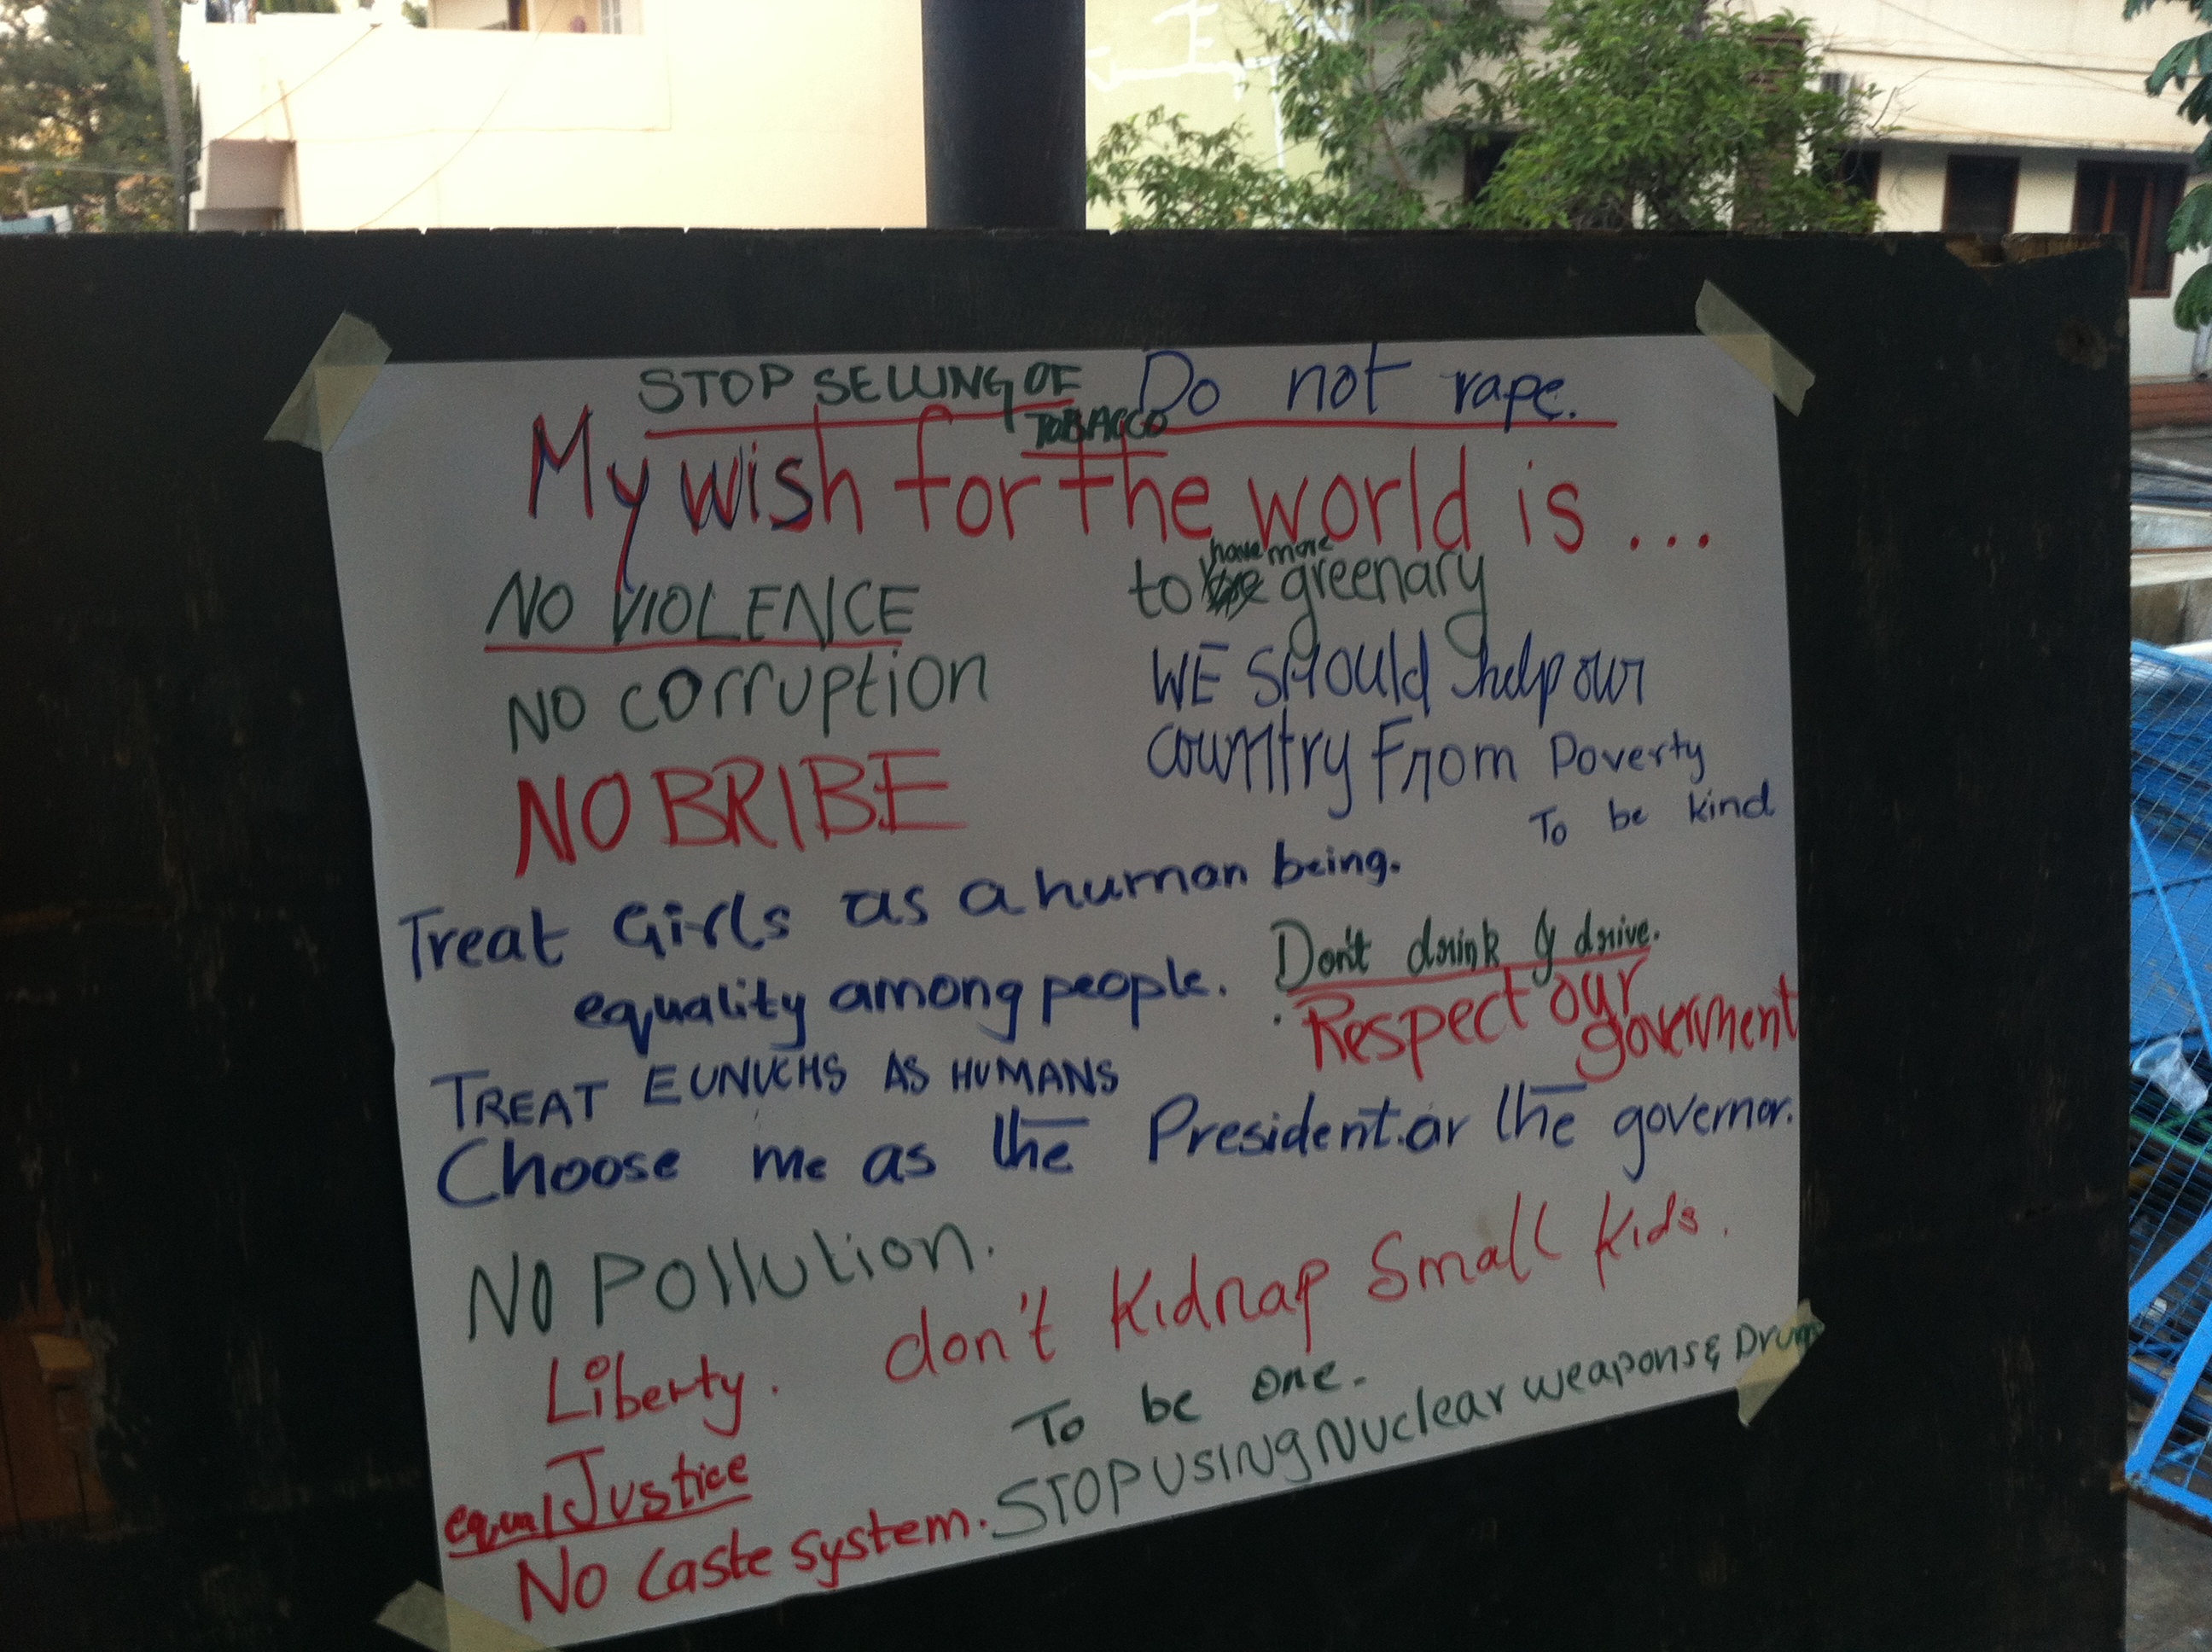 STOP SELLING OF TOBACCO
Do not rape.
My wish for the world is ...
NO VIOLENCE
to have more greenary
NO corruption
WE SHOULD help our
country From Poverty
NO BRIBE
To be kind
Treat Girls as a human being.
equality among people.
Don't drink & drive.
Respect our government
TREAT EUNUCHS AS HUMANS
Choose me as the President.or the governor.
NO Pollution.
don't kidnap small kids.
Liberty.
To be one.
equal Justice
STOP USING Nuclear weapons & Drugs
No caste system.